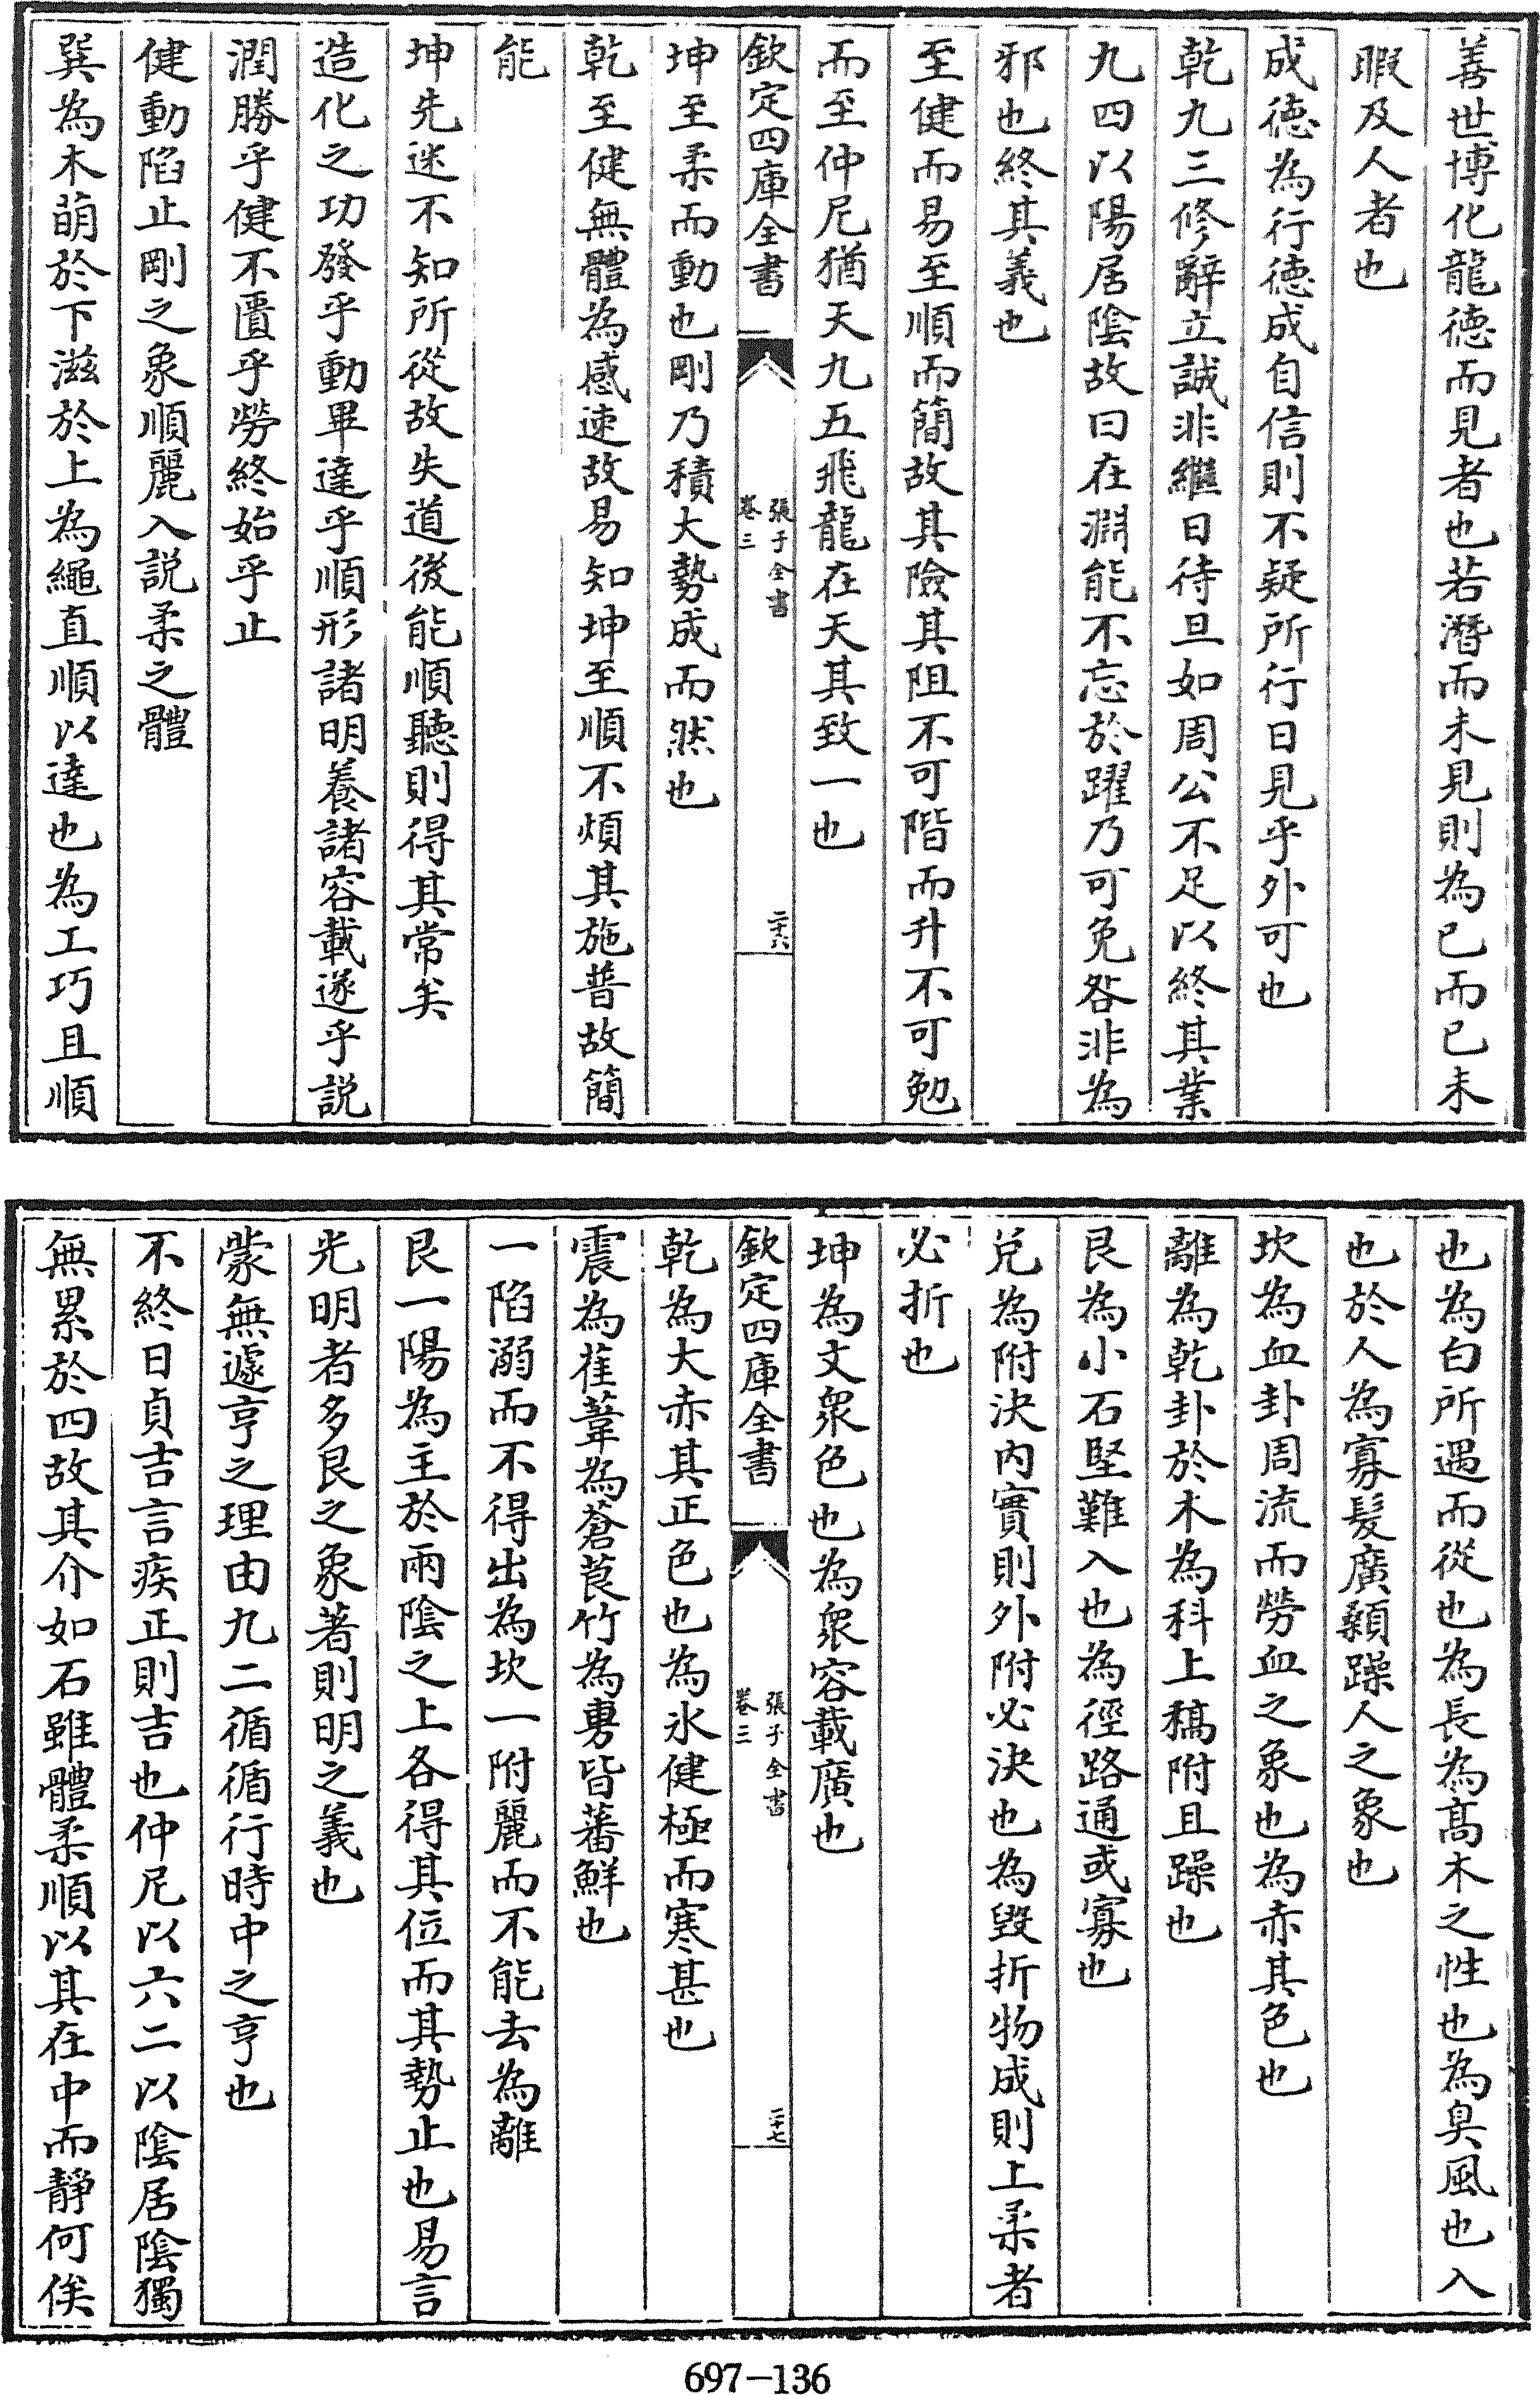 善世博化龍徳而見者也若潛而未見則為己而已未
暇及人者也
成徳為行徳成自信則不疑所行日見乎外可也
乾九三修辭立誠非繼日待旦如周公不足以終其業
九四以陽居陰故曰在淵能不忘於躍乃可免咎非為
邪也終其義也
至健而易至順而簡故其險其阻不可階而升不可勉
而至仲尼猶天九五飛龍在天其致一也
欽定四庫全書
張子全書
卷三
二十六
坤至柔而動也剛乃積大勢成而然也
乾至健無體為感速故易知坤至順不煩其施普故簡
能
坤先迷不知所從故失道後能順聽則得其常矣
造化之功發乎動畢達乎順形諸明養諸容載遂乎説
潤勝乎健不匱乎勞終始乎止
健動陷止剛之象順麗入説柔之體
巽為木萌於下滋於上為繩直順以達也為工巧且順
也為白所遇而從也為長為髙木之性也為臭風也入
也於人為寡髮廣顙躁人之象也
坎為血卦周流而勞血之象也為赤其色也
離為乾卦於木為科上稿附且躁也
艮為小石堅難入也為徑路通或寡也
兑為附決内實則外附必決也為毀折物成則上柔者
必折也
坤為文衆色也為衆容載廣也
欽定四庫全書
張子全書
卷三
二十七
乾為大赤其正色也為氷健極而寒甚也
震為萑葦為蒼茛竹為旉皆蕃鮮也
一陷溺而不得出為坎一附麗而不能去為離
艮一陽為主於兩陰之上各得其位而其勢止也易言
光明者多艮之象著則明之義也
蒙無遽亨之理由九二循循行時中之亨也
不終日貞吉言疾正則吉也仲尼以六二以陰居陰獨
無累於四故其介如石雖體柔順以其在中而靜何俟
697-136